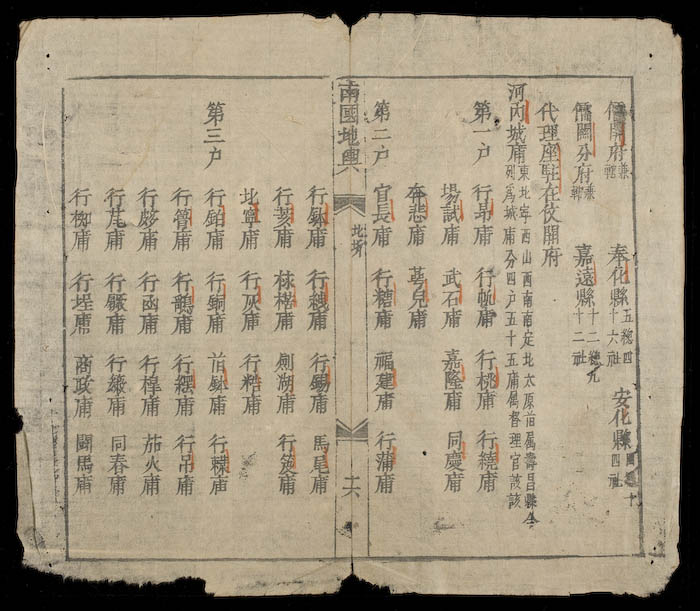 儒關府兼轄 奉化縣五總四十六社 安化縣
儒關分府兼轄 嘉遠縣十二總九十二社
代理座駐在伩關府
河內城庯東北寧西山西南南定北太原前属壽昌縣今
列爲城庯分四户五十五庯属督理官該
第一户 行昻庯 行帆庯 行桃庯 行繞庯
塲試庯 武石庯 嘉隆庯 同慶庯
奔悲庯 萼兒庯
第二户 官長庯 行糟庯 福建庯 行蒲庯
南國地輿
北圻
十六
行銤庯 行綫庯 行錫庯 馬尾庯
行茭庯 梂楷庯 劍湖庯 行笅庯
北寧庯 行灰庯 行粘庯
第三户 行鉑庯 行銅庯 前銤庯 行䊦庯
行簹庯 行鵲庯 行繏庯 行吊庯
行㡯庯 行函庯 行楻庯 茄火庯
行芘庯 行鐝庯 行𥿠庯 同春庯
行柳庯 行埕庯 商政庯 鬭馬庯